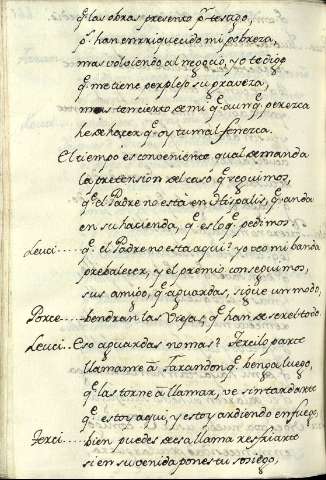 q̃ las obras presento pr testigo,
q̃ han enrriquecido mi pobreza,
mas volviendo al negocio, yo te digo
q̃ me tiene perplejo su graveza,
mas ten cierto de mi q̃ aunq̃ perezca
he de hacer q̃ oy tu mal fenezca.
El tiempo es conveniente qual demanda
la pretension del caso q̃ seguimos,
q̃ el Padre no está en Hispalis, q̃ anda
en su hacienda, q̃ es lo q̃ pedimos
Leuci..... q̃ el Padre no esta aqui? yo veo mi banda
prebalecer, y el premio conseguimos,
sus amigo, q̃ aguardas, sigue un modo,
Porce..... bendran las Viejas, q̃ han de ser el todo.
Leuci..... Eso aguardas nomas? Ircilo parte
llamame â Tarandon q̃ benga luego,
q̃ las torne â llamar, ve sin tardarte
q̃ estoy aqui, y estoy ardiendo en fuego,
bien puedes de esa llama resfriarte
si en su venida pones tu sosiego,